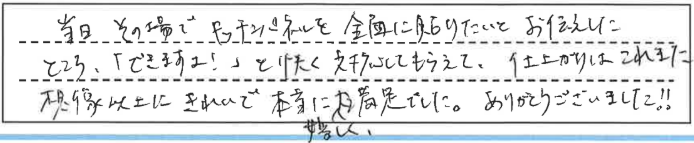 当日 その場で キッチンパネルを 全面に貼りたいと お伝えした
ところ、「できますよ!」と 快く 対応してもらえて、仕上がりは これまた
想像以上に きれいで 本当に 大満足でした。 ありがとうございました!!
嬉しく、